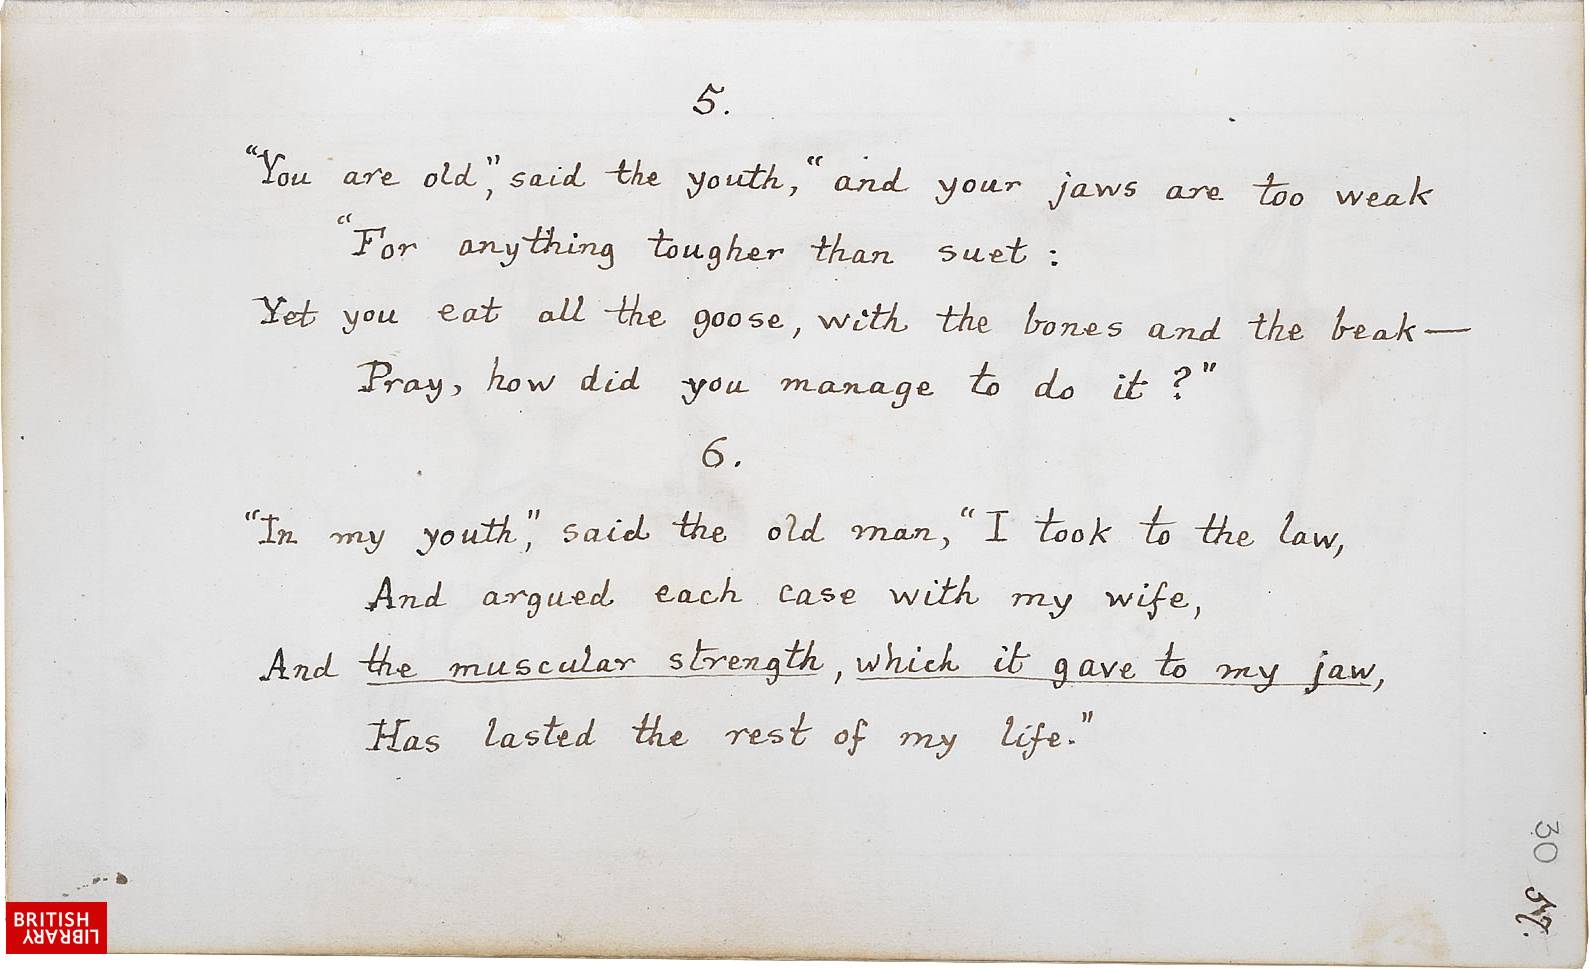 5.
"You are old," said the youth, "and your jaws are too weak
"For anything tougher than suet:
Yet you eat all the goose, with the bones and the beak—
Pray, how did you manage to do it?"
6.
"In my youth," said the old man, "I took to the law,
And argued each case with my wife,
And the muscular strength, which it gave to my jaw,
Has lasted the rest of my life."
30
BRITISH
LIBRARY